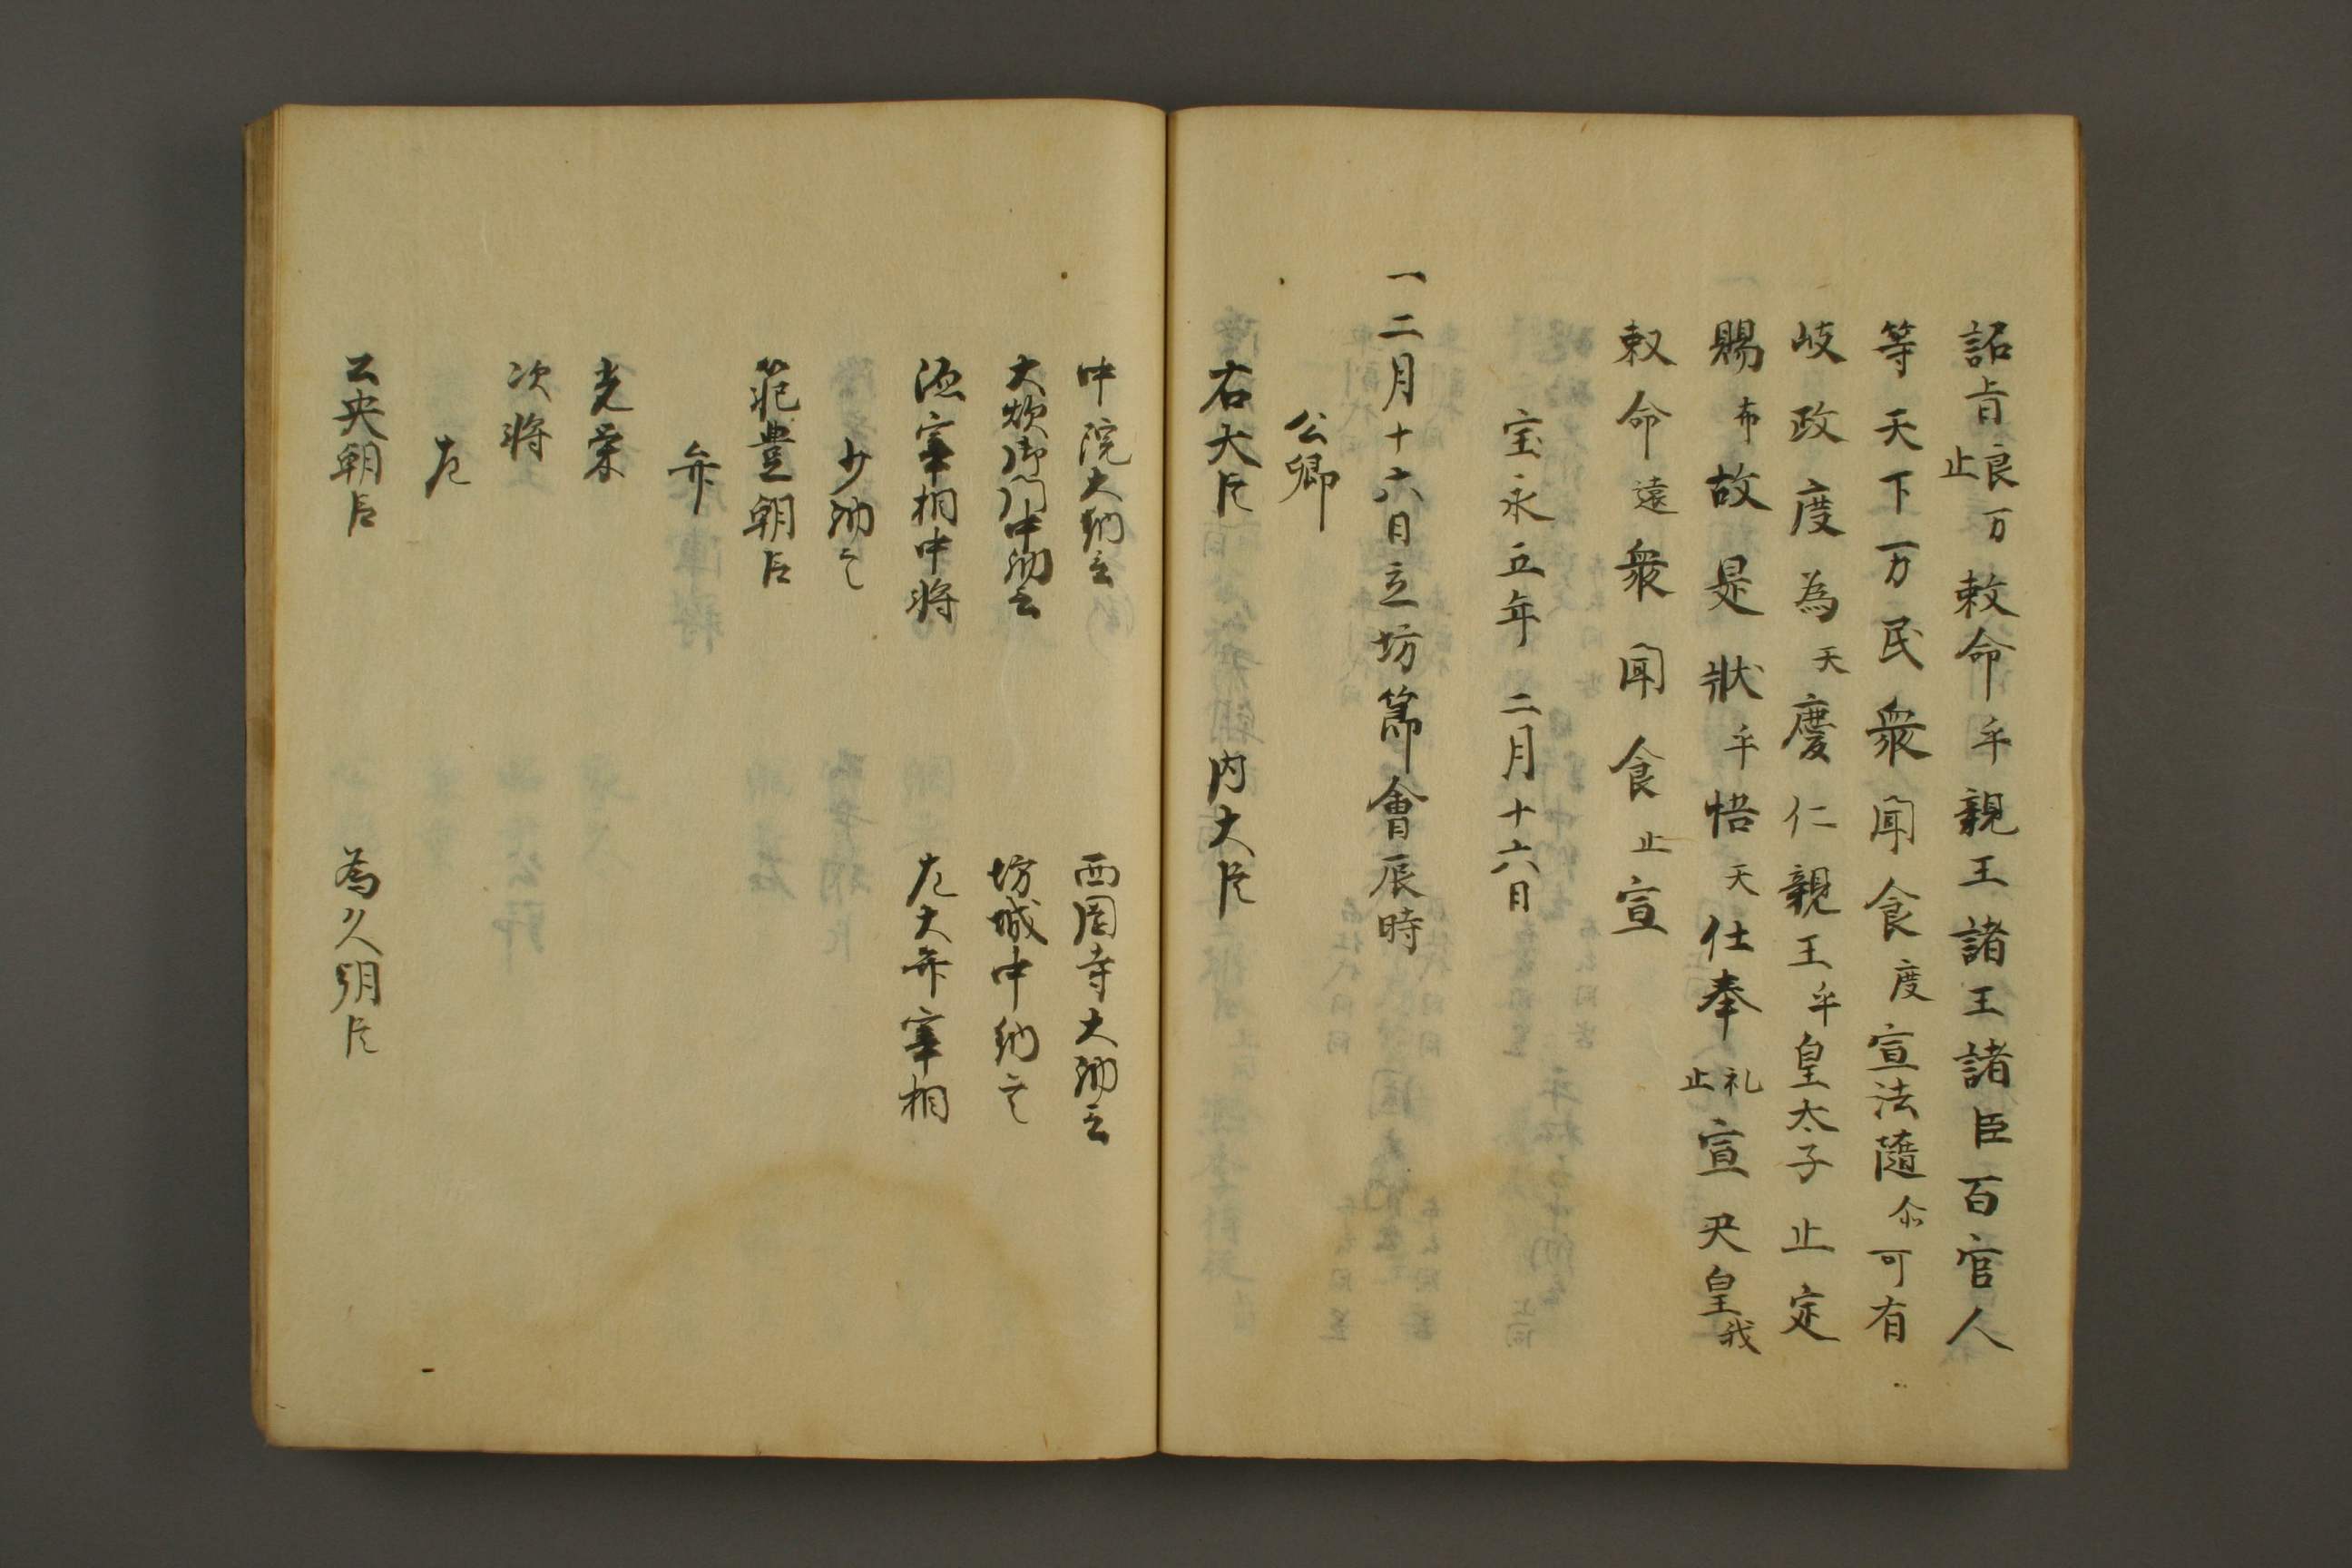 詔旨良万止勅命乎親王諸王諸臣百官人
等天下万民衆聞食度宣法隨尓可有
岐政度為天慶仁親王乎皇太子止定
賜布故是状乎悟天仕奉礼止宣天皇我
勅命遠衆聞食止宣
宝永五年二月十六日
一二月十六日立坊節會辰時
公卿
右大臣 内大臣
中院大納言 西園寺大納言
大炊御門中納言 坊城中納言
宰相中将 左大弁宰相
少納言
範豊朝臣
弁
光栄
次将
左
公央朝臣 為久朝臣